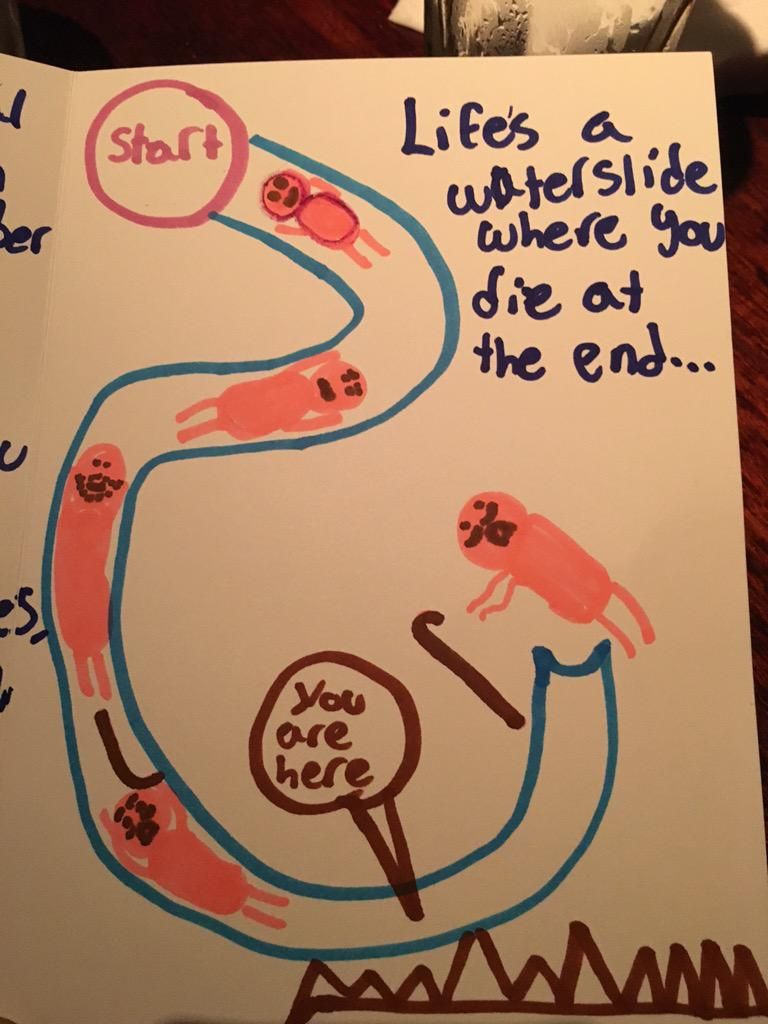 Start
Life's a
waterslide
where you
die at
the end...
You
are
here